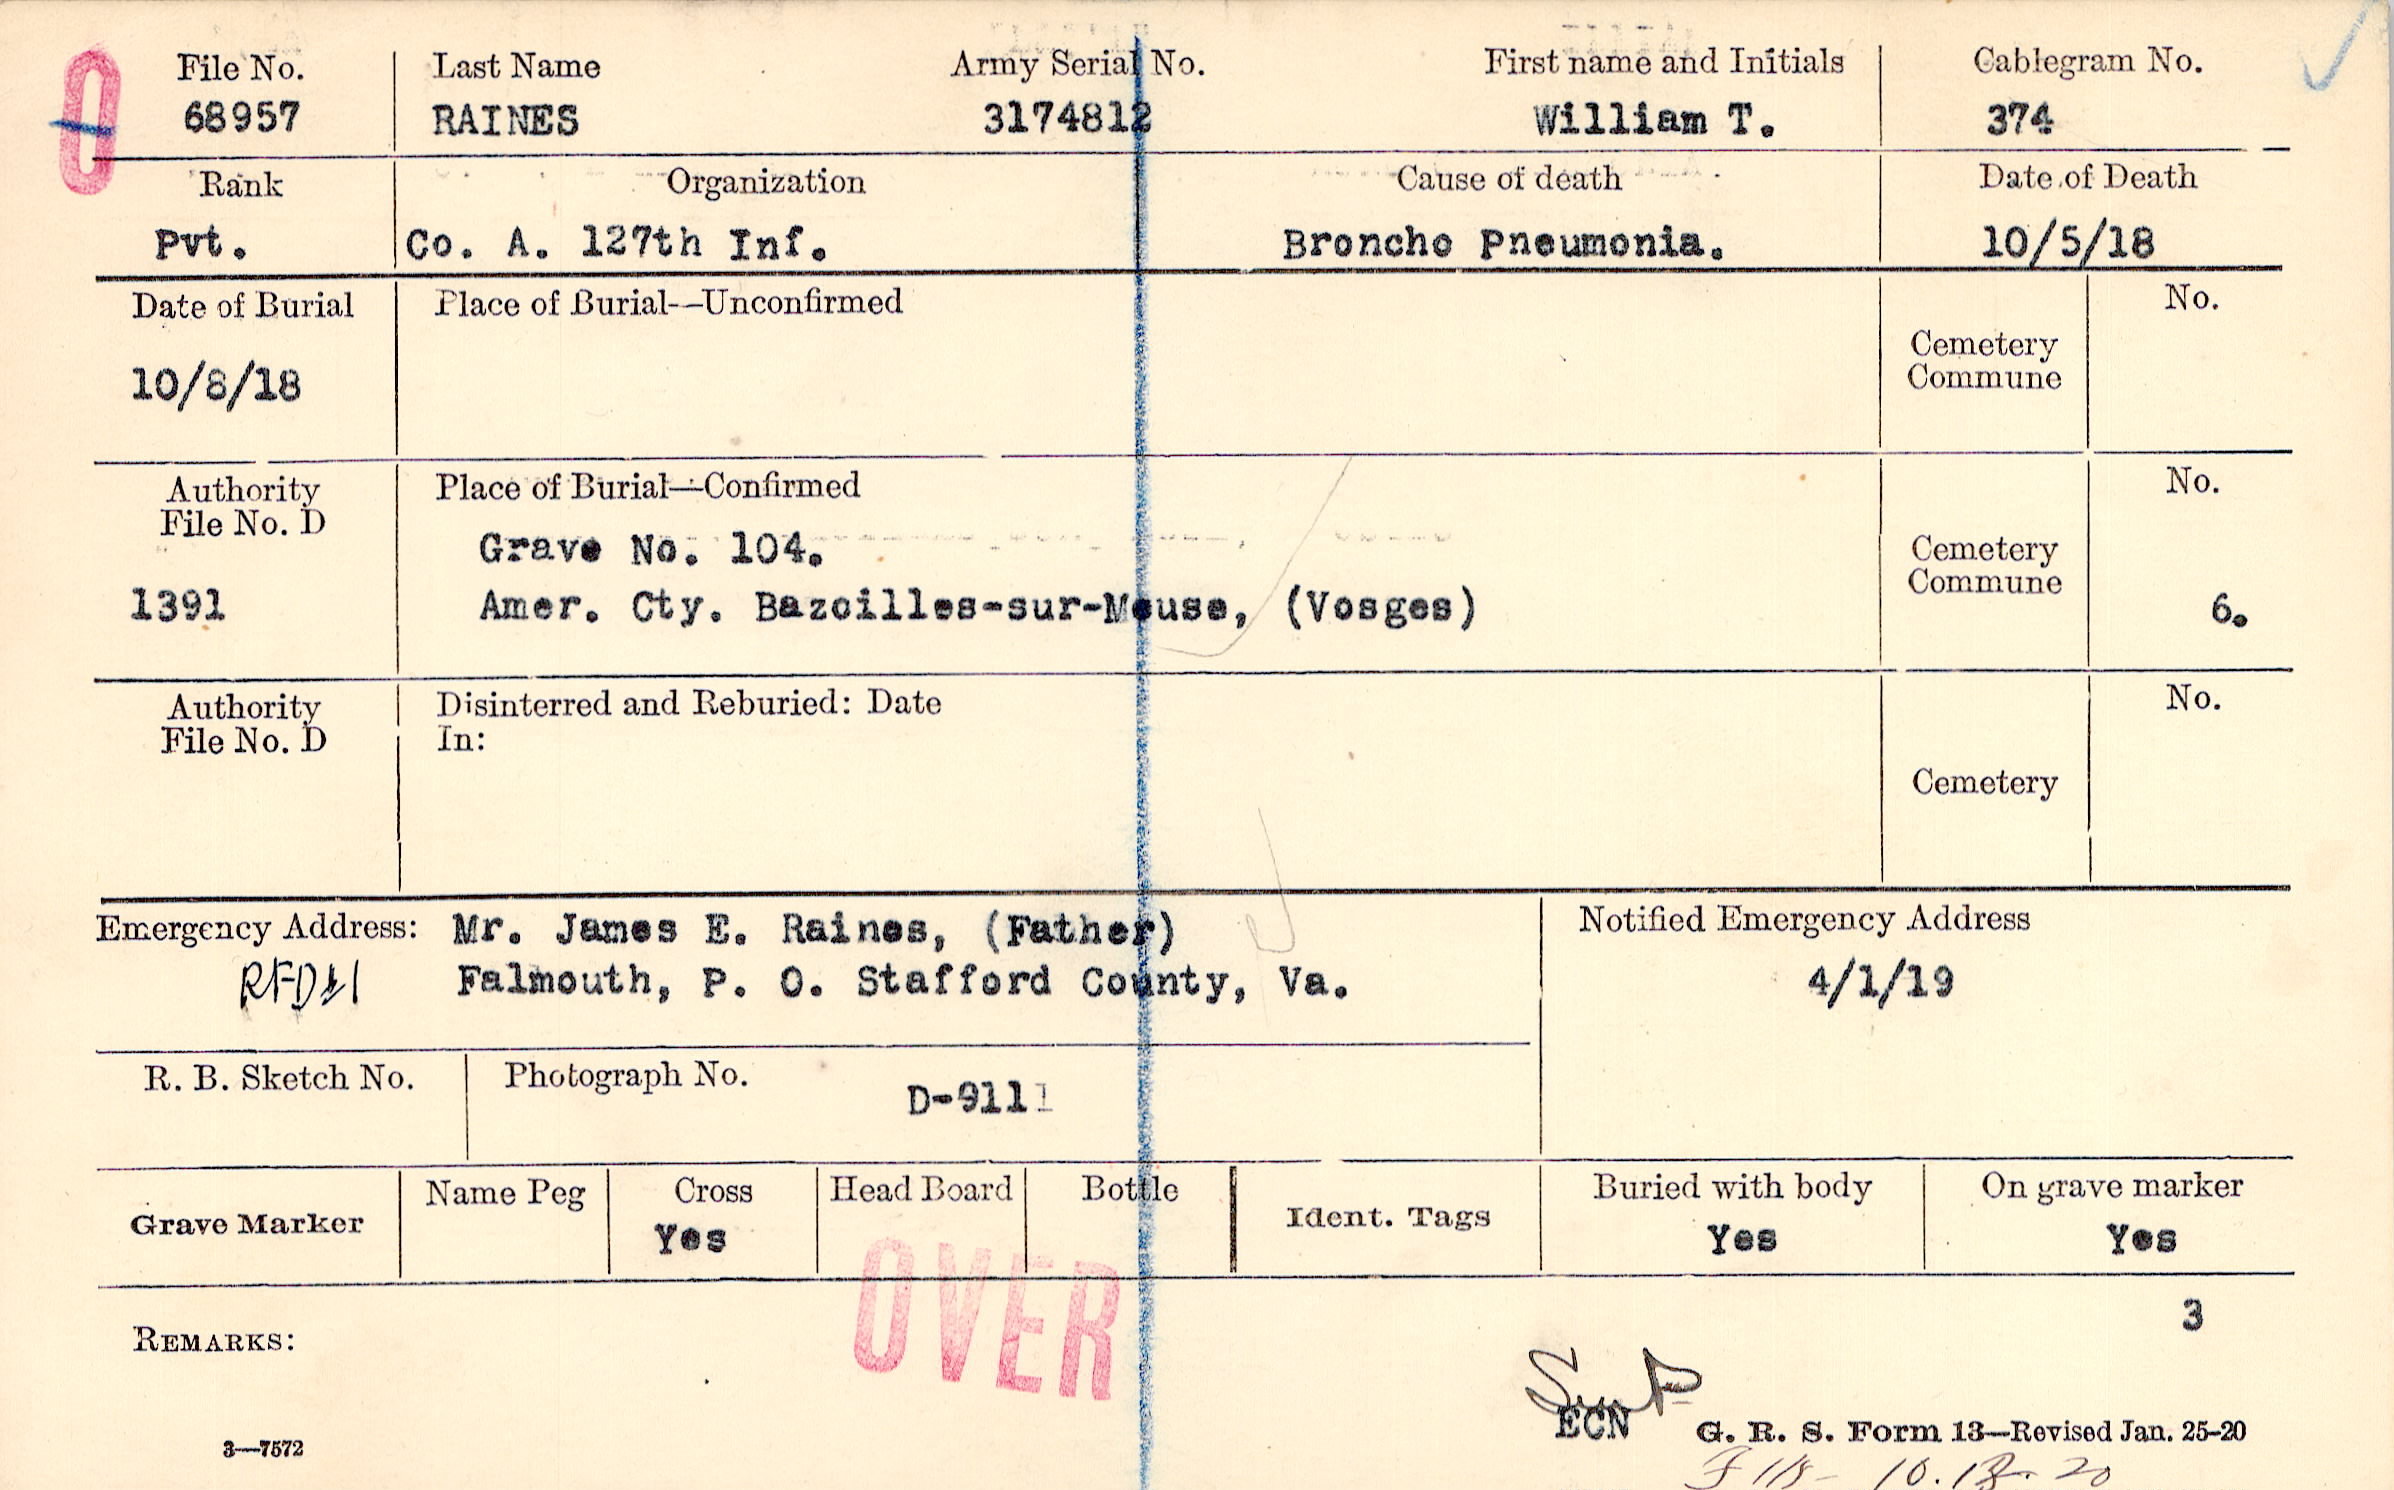 File No. Last Name Army Serial No. First name and Initials Cablegram No.
68957 RAINES 3174812 William T. 374
Rank Organization Cause of death Date of Death
Pvt. Co. A. 127th Inf. Broncho Pneumonia. 10/5/18
Date of Burial Place of Burial—Unconfirmed No.
Cemetery
Commune
10/8/18
Authority Place of Burial—Confirmed No.
File No. D
Grave No. 104. Cemetery
Commune
1391 Amer. Cty. Bazoilles-sur-Meuse, (Vosges) 6.
Authority Disinterred and Reburied: Date No.
File No. D In:
Cemetery
Emergency Address: Mr. James E. Raines, (Father) Notified Emergency Address
RFD#1 Falmouth, P. O. Stafford County, Va. 4/1/19
R. B. Sketch No. Photograph No. D-9111
Grave Marker Name Peg Cross Head Board Bottle Ident. Tags Buried with body On grave marker
Yes Yes Yes
OVER
3
REMARKS:
ECN G. R. S. Form 13—Revised Jan. 25-20
3—7572